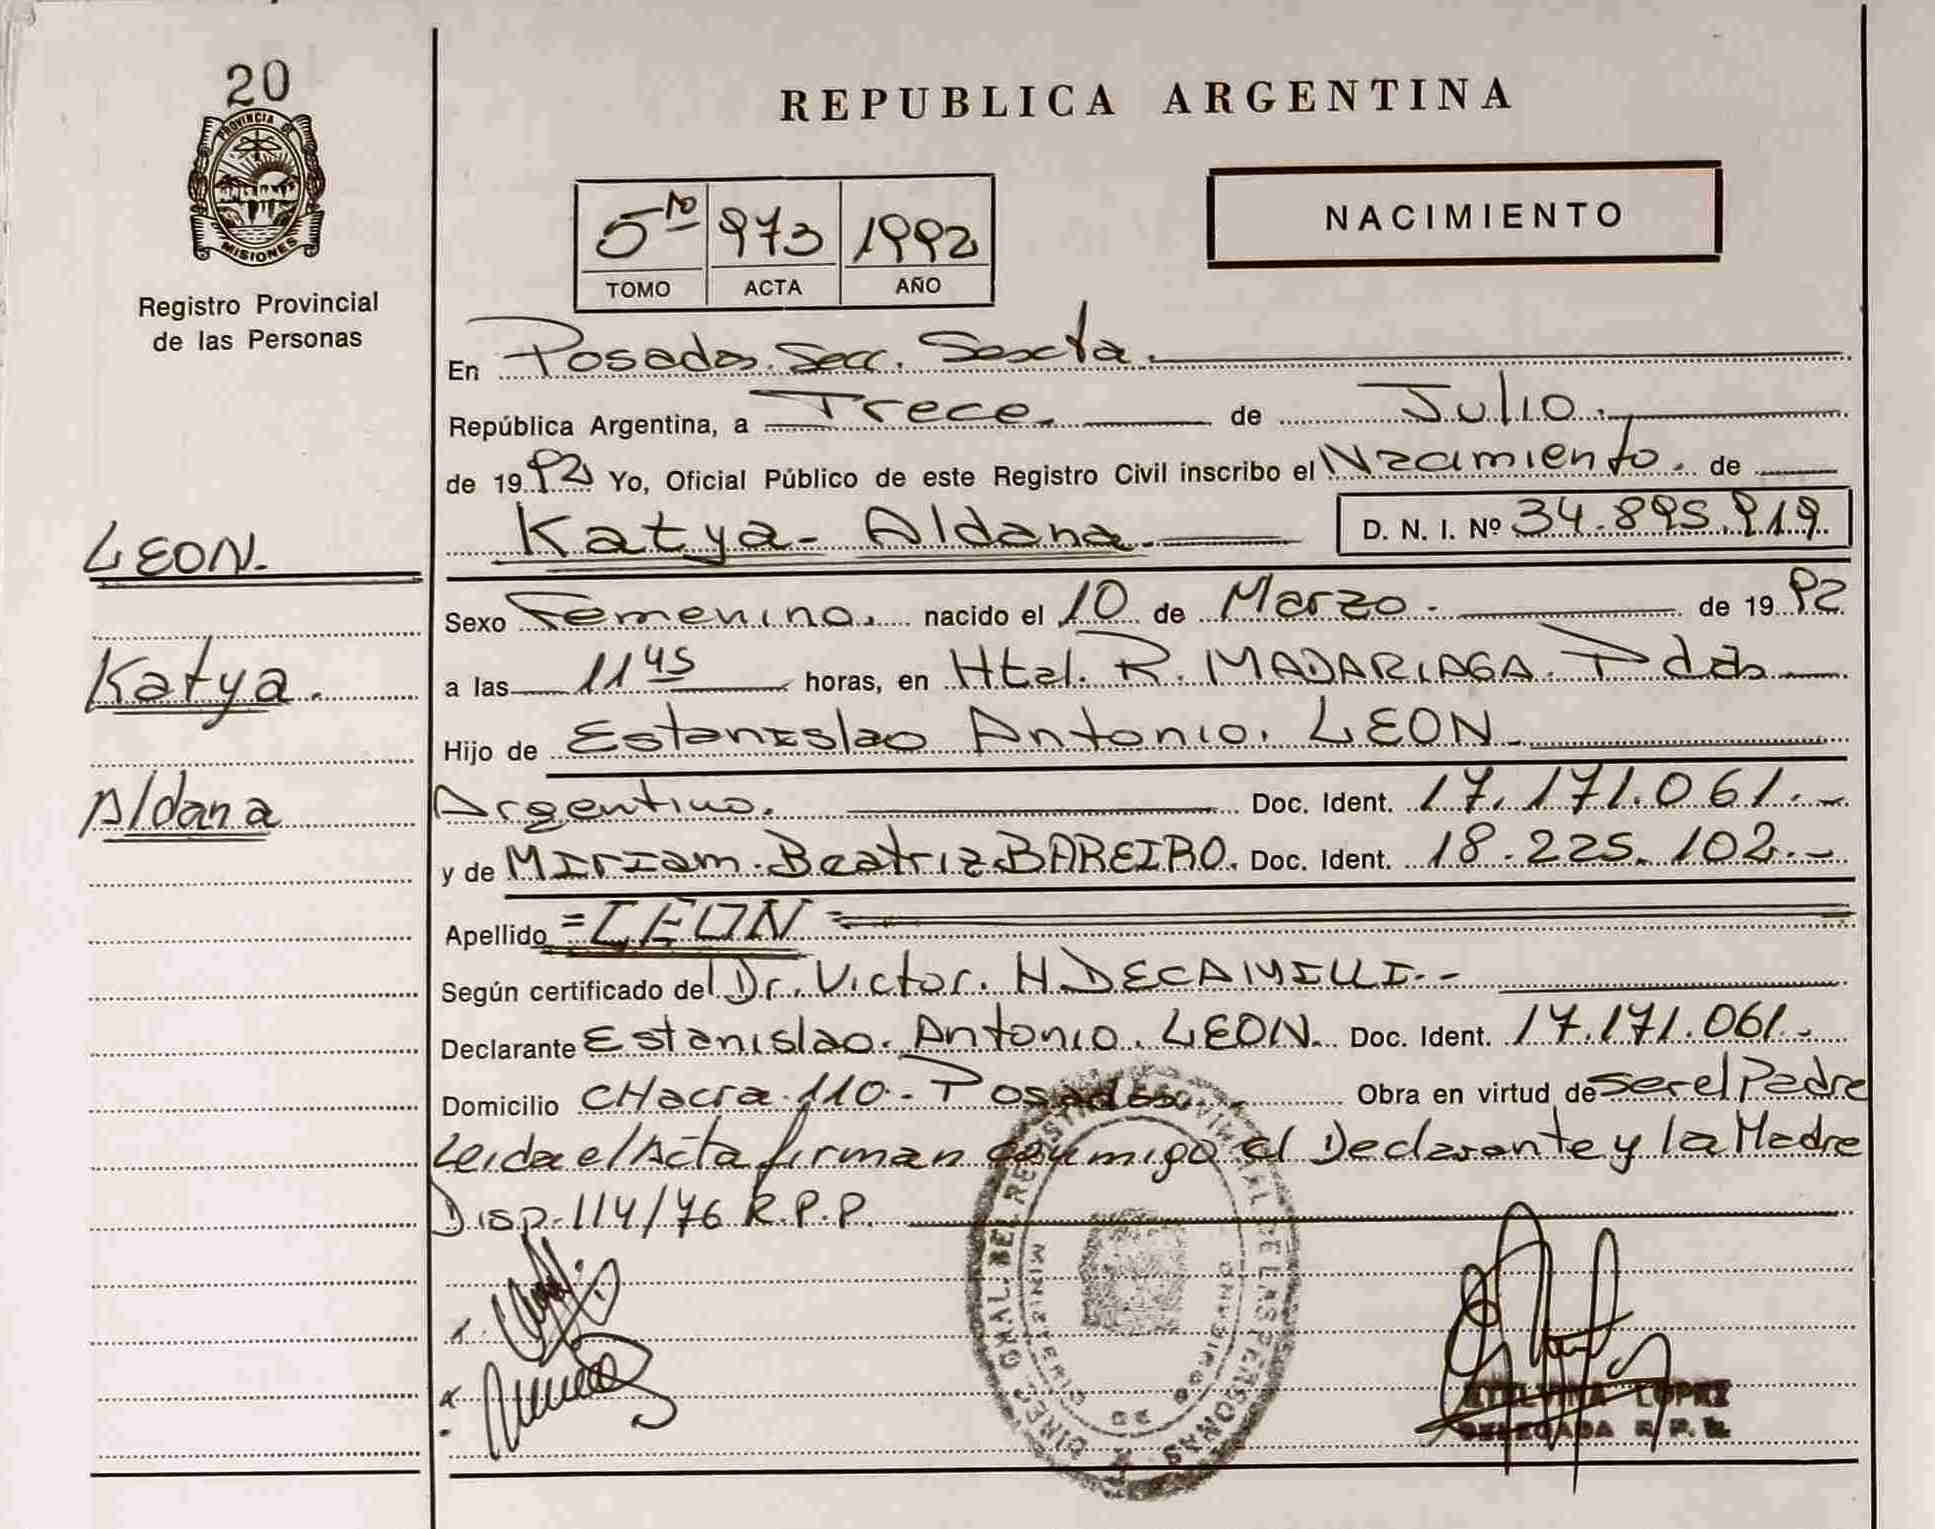 20
PROVINCIA DE
MISIONES
Registro Provincial
de las Personas
LEON.
Katya.
Aldana
REPUBLICA ARGENTINA
5to 973 1992
TOMO ACTA AÑO
NACIMIENTO
En Posadas. Secc. Sexta.
República Argentina, a Trece. de Julio.
de 1992 Yo, Oficial Público de este Registro Civil inscribo el Nzcimiento. de
Katya- Aldana. D. N. I. Nº 34.895.919
Sexo Femenino. nacido el 10 de Marzo. de 1992
a las 11 45 horas, en Htal. R. MADARIAGA. Pdas
Hijo de Estanislao Antonio. LEON.
Argentino. Doc. Ident. 17.171.061.-
y de Miriam. Beatriz BAREIRO. Doc. Ident. 18.225.102.-
Apellido =LEON=
Según certificado del Dr. Victor. H. DECAMILLI.-
Declarante Estanislao. Antonio. LEON. Doc. Ident. 17.171.061.-
Domicilio CHacra 110.- Posadas. Obra en virtud de ser el Padre
Leida el Acta firman conmigo el Declarante y la Madre
Disp. 114/76 R.P.P.
DEL REGISTRO PROVINCIAL DE LAS PERSONAS
MINISTERIO DE GOBIERNO
LOPEZ
DELEGADA R. P.